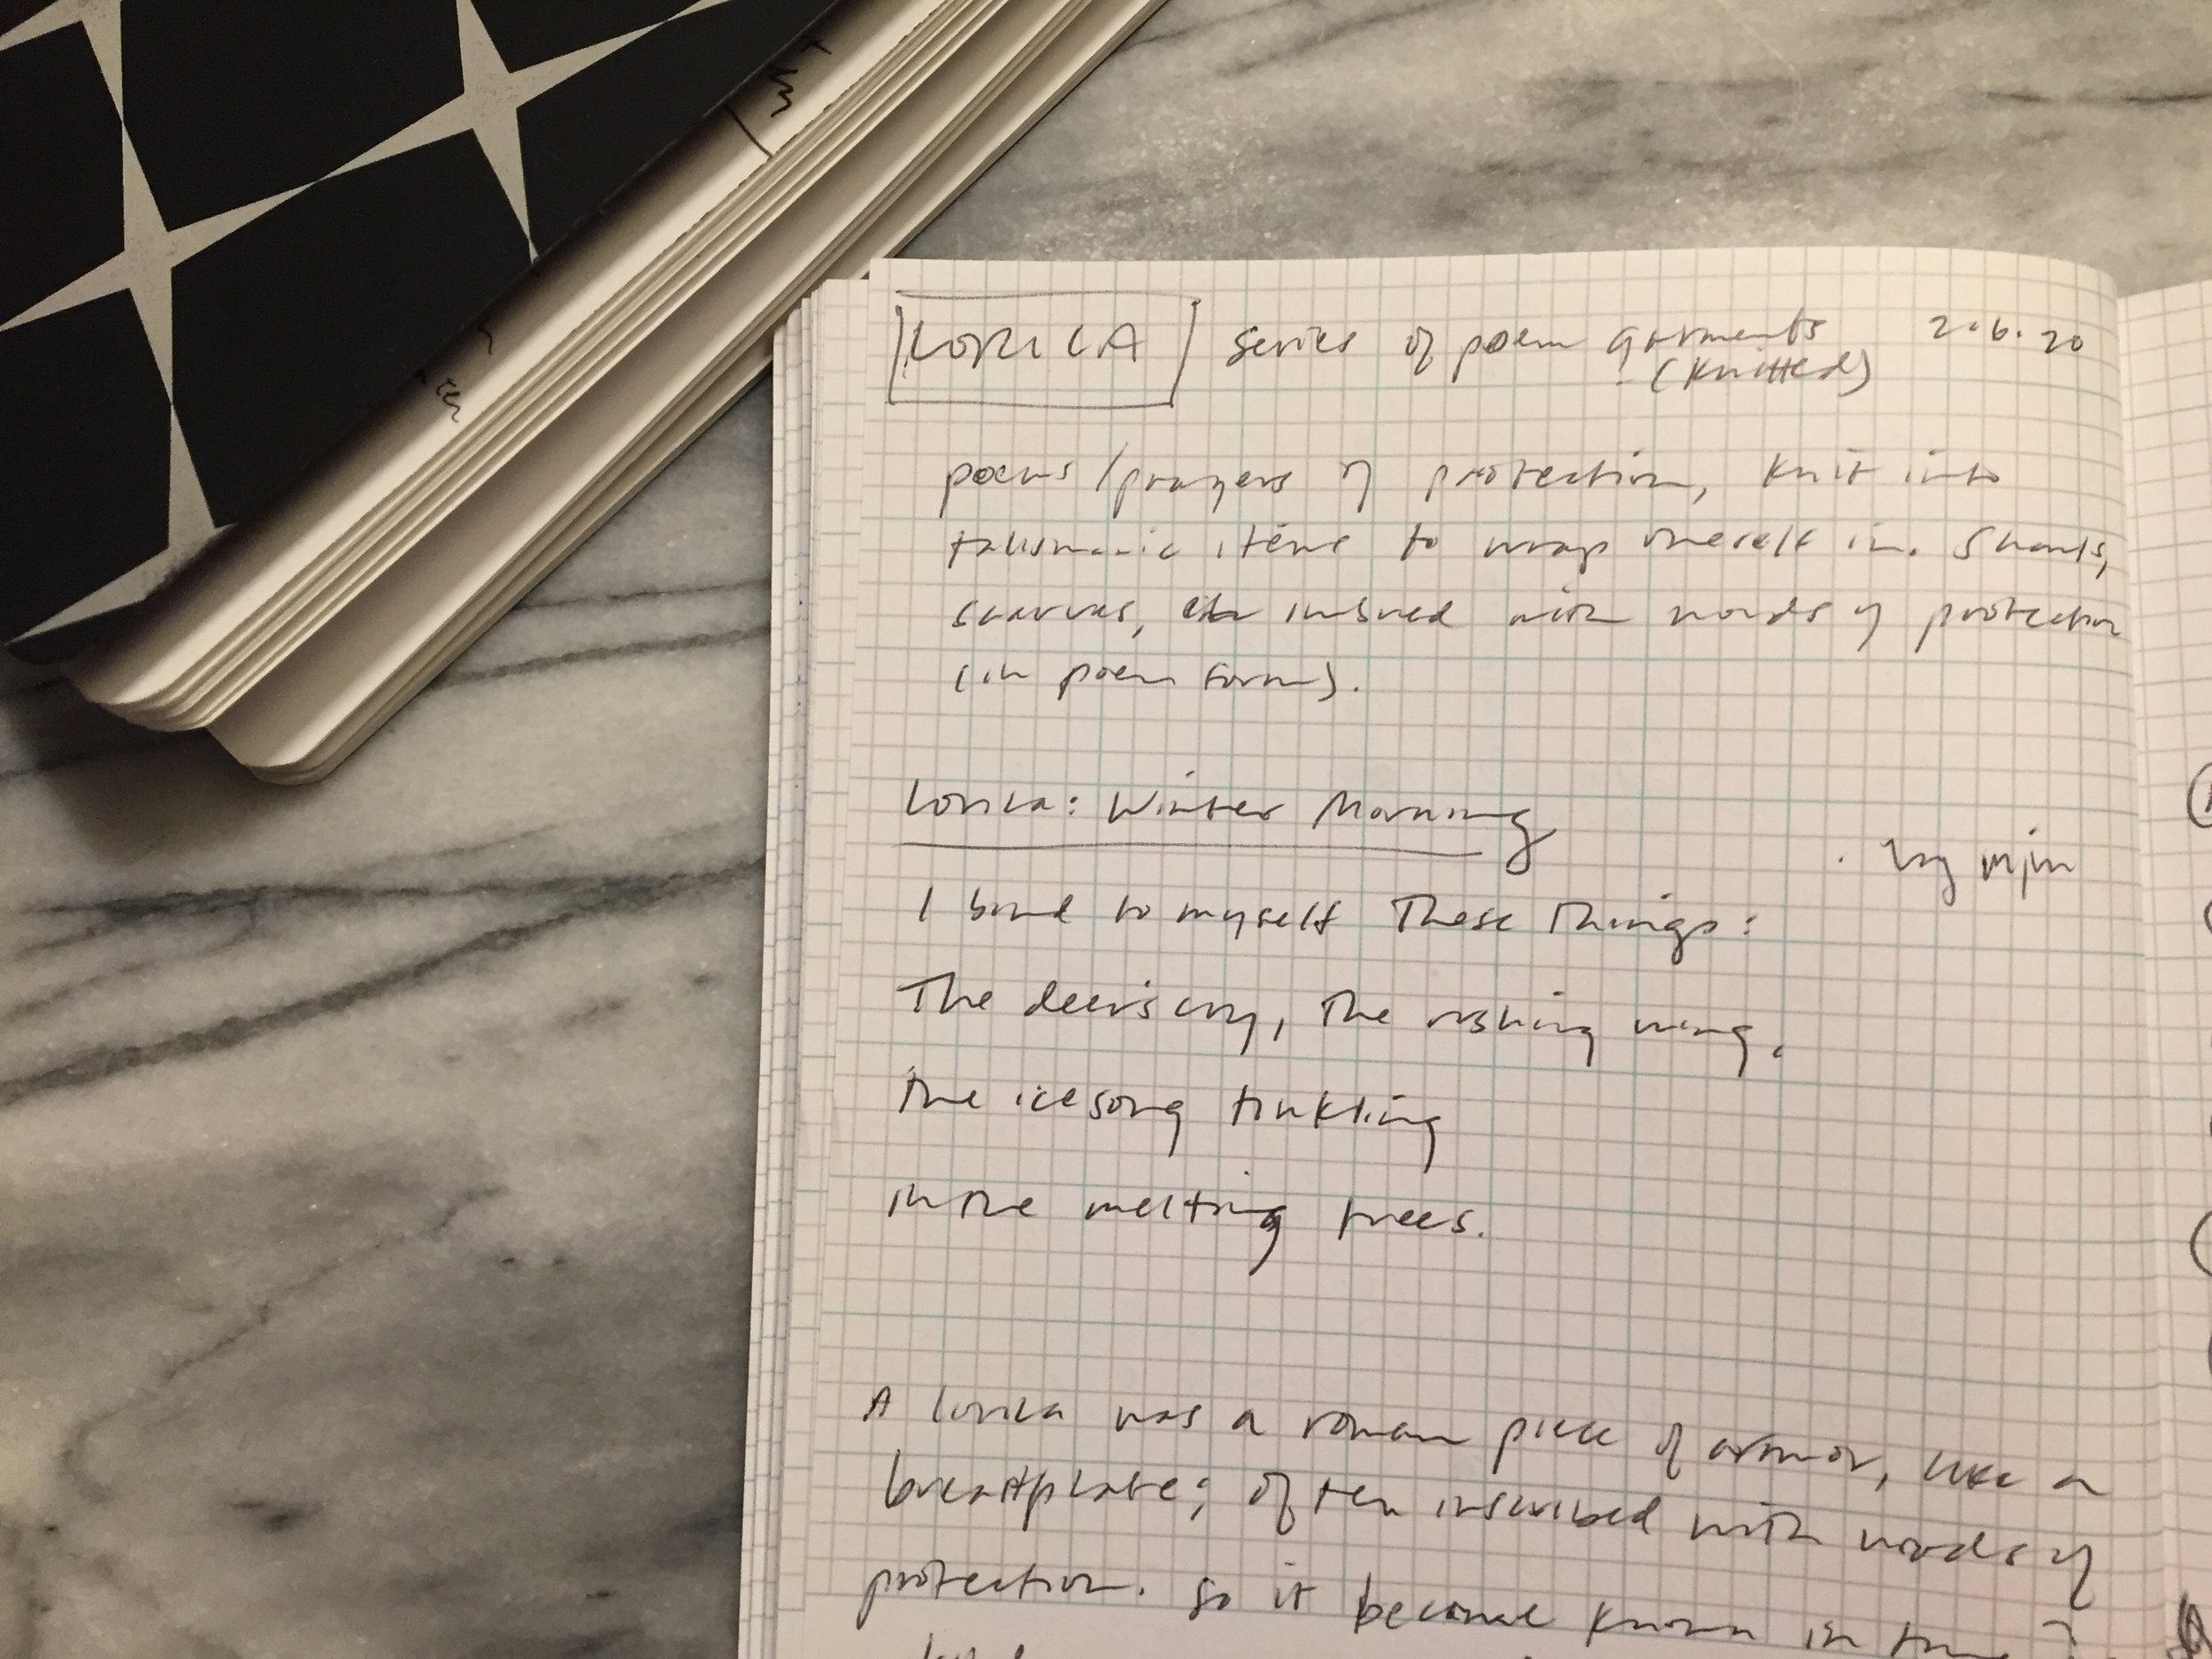 LORICA series of poem garments 2.6.20
(knitted)
poems/prayers of protection, knit into
talismanic items to wrap oneself in. Shawls,
scarves, etc imbued with words of protection
(in poem form).
Lorica: Winter Morning
I bind to myself These Things:
The deer's cry, The rushing wing,
the icesong tinkling
in the melting trees.
A lorica was a roman piece of armor, like a
breastplate; often inscribed with words of
protection. So it became known in time